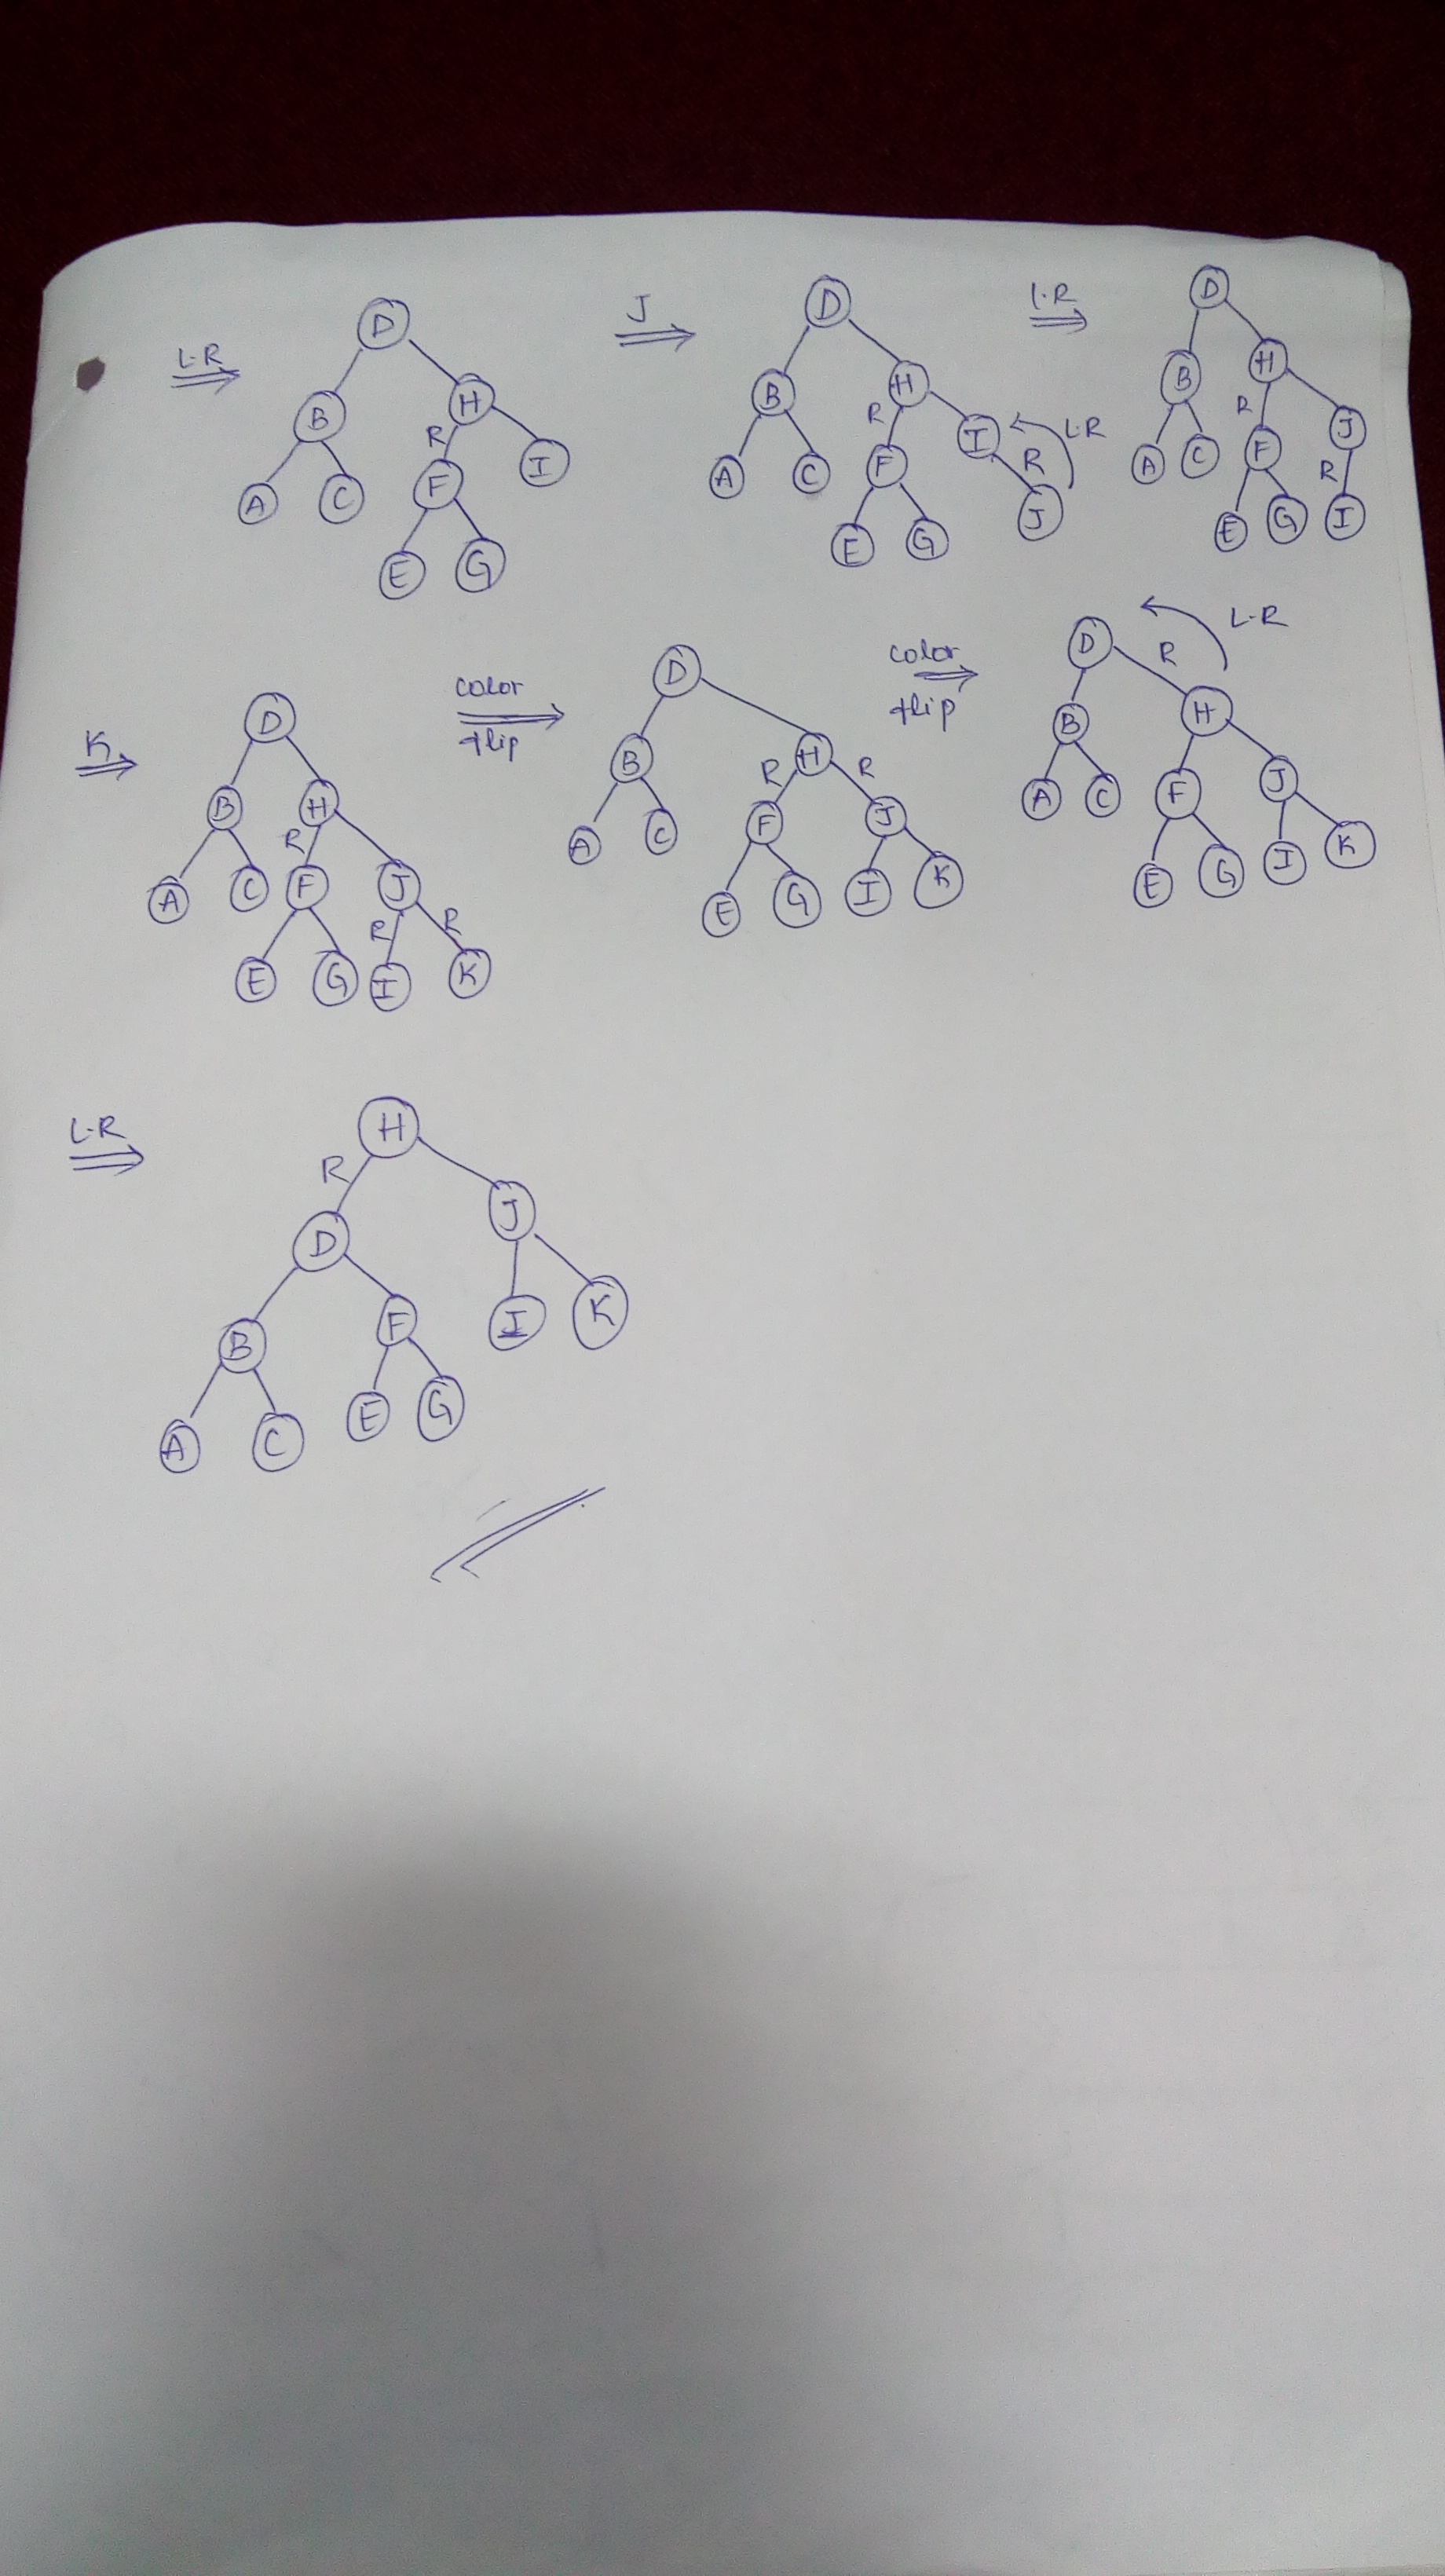 L.R
D
B H
R
A C F I
E G
J
D
B H
R
A C F I L.R
R
E G J
L.R
D
B H
R
A C F J
R
E G I
K
D
B H
R
A C F J
R R
E G I K
color
flip
D
B H
R R
A C F J
E G I K
color
flip
D R L.R
B H
A C F J
E G I K
L.R
H
R
D J
B F I K
A C E G